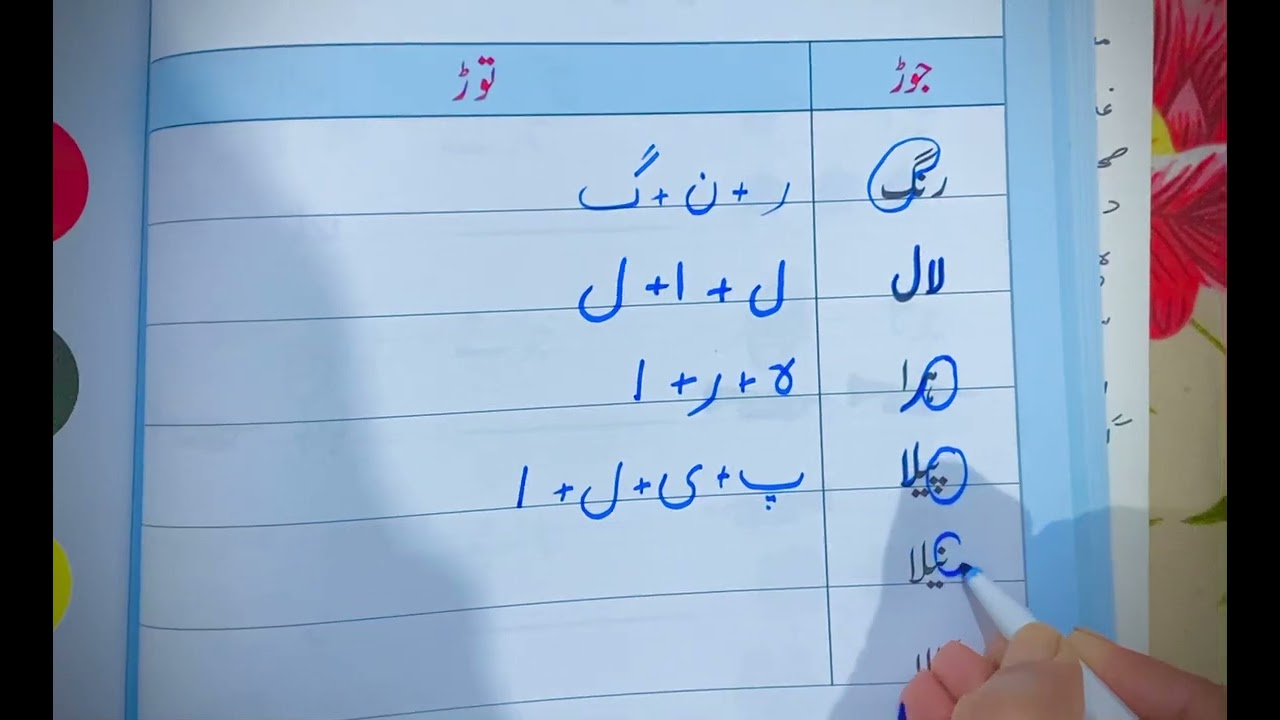 جوڑ توڑ
رنگ ر + ن + گ
لال ل + ا + ل
ہرا ہ + ر + ا
پیلا پ + ی + ل + ا
نیلا